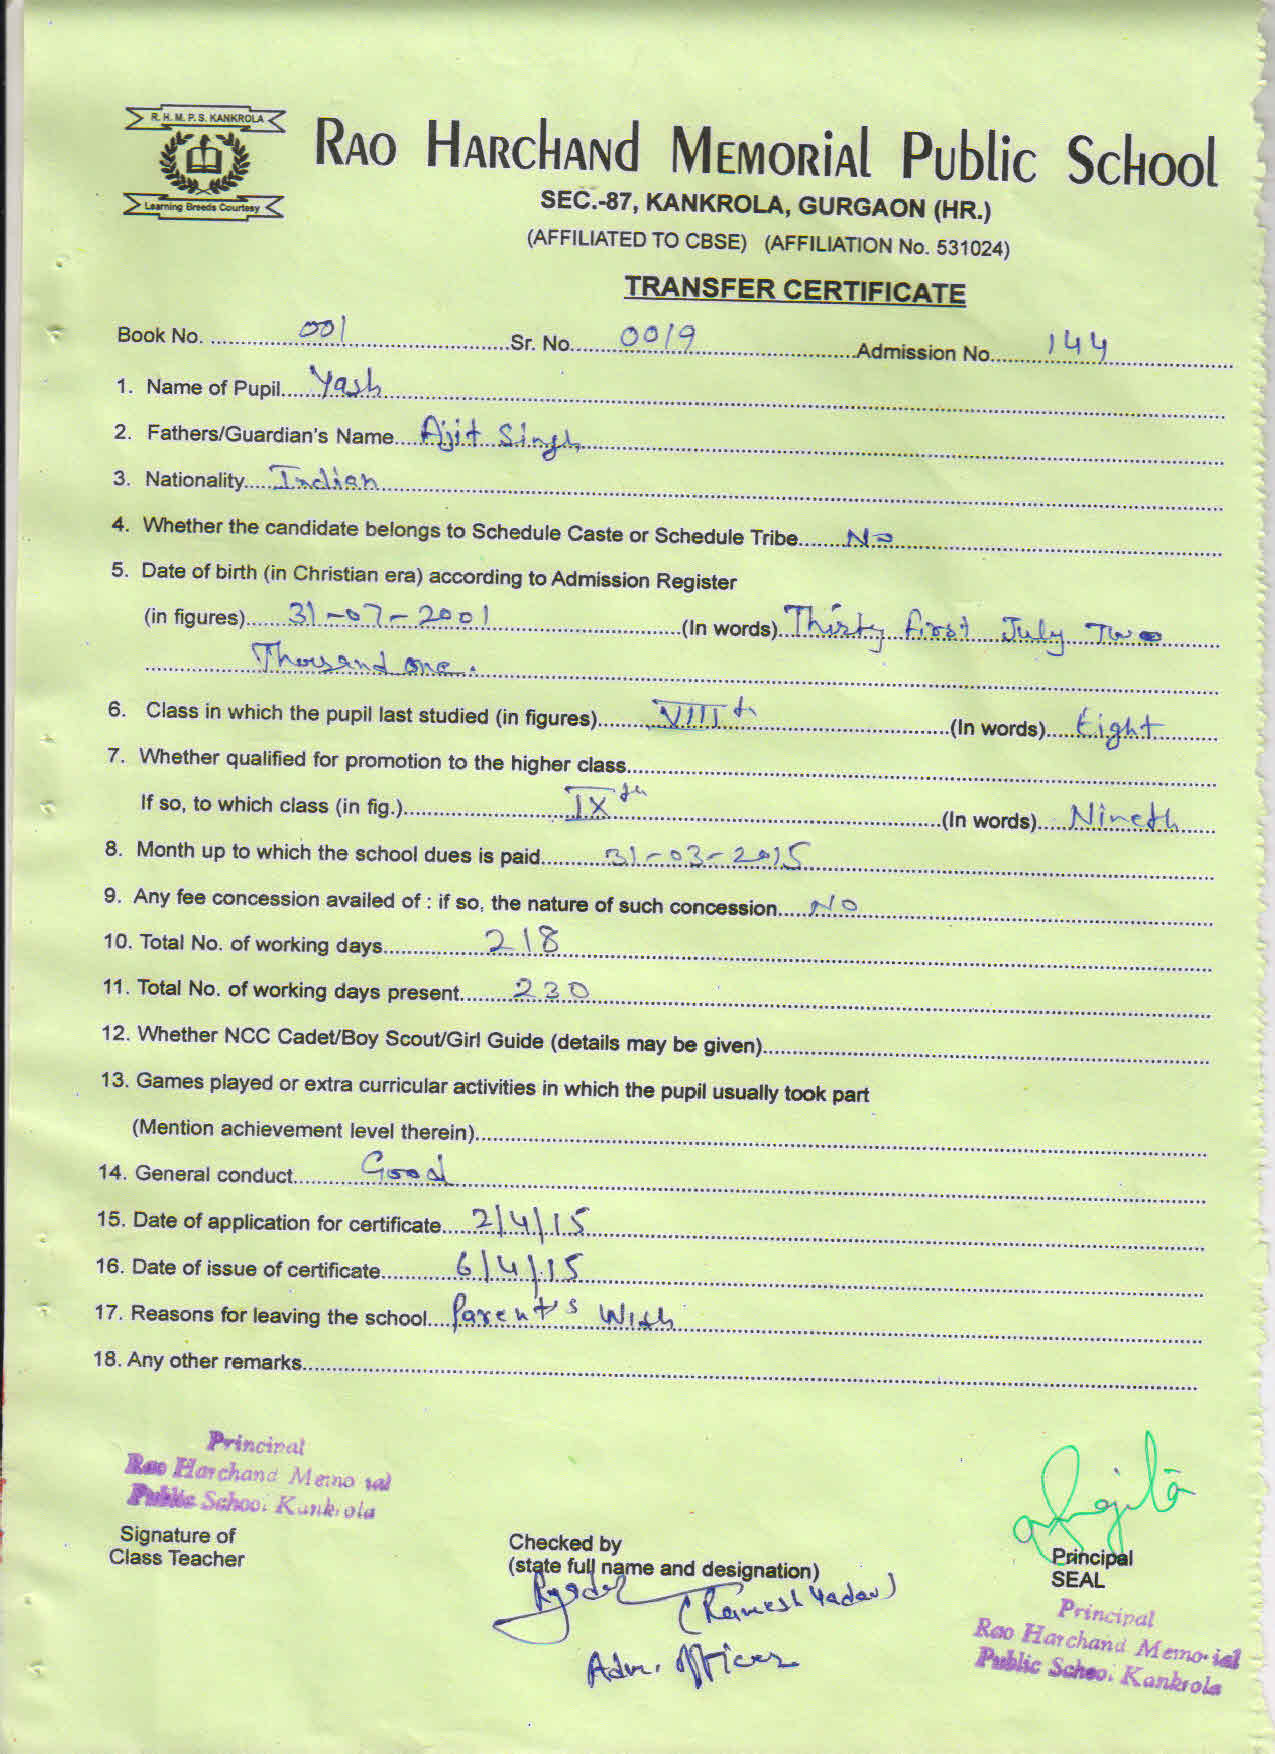 R. H. M. P. S. KANKROLA
Learning Breeds Courtesy
RAO HARCHANd MEMORIAL Public School
SEC.-87, KANKROLA, GURGAON (HR.)
(AFFILIATED TO CBSE) (AFFILIATION No. 531024)
TRANSFER CERTIFICATE
Book No. 001 Sr. No. 0019 Admission No. 144
1. Name of Pupil Yash
2. Fathers/Guardian's Name Ajit Singh
3. Nationality Indian
4. Whether the candidate belongs to Schedule Caste or Schedule Tribe No
5. Date of birth (in Christian era) according to Admission Register
(in figures) 31-07-2001 (In words) Thirty first July Two
Thousand one.
6. Class in which the pupil last studied (in figures) VIIIth (In words) Eight
7. Whether qualified for promotion to the higher class
If so, to which class (in fig.) IXth (In words) Nineth
8. Month up to which the school dues is paid 31-03-2015
9. Any fee concession availed of : if so, the nature of such concession NO
10. Total No. of working days 218
11. Total No. of working days present 230
12. Whether NCC Cadet/Boy Scout/Girl Guide (details may be given)
13. Games played or extra curricular activities in which the pupil usually took part
(Mention achievement level therein)
14. General conduct Good
15. Date of application for certificate 2/4/15
16. Date of issue of certificate 6/4/15
17. Reasons for leaving the school Parent's Wish
18. Any other remarks
Principal
Rao Harchand Memorial
Public School Kankrola
Signature of
Class Teacher
Checked by
(state full name and designation)
(Ramesh Yadav)
Adm. Officer
Principal
SEAL
Principal
Rao Harchand Memorial
Public School Kankrola